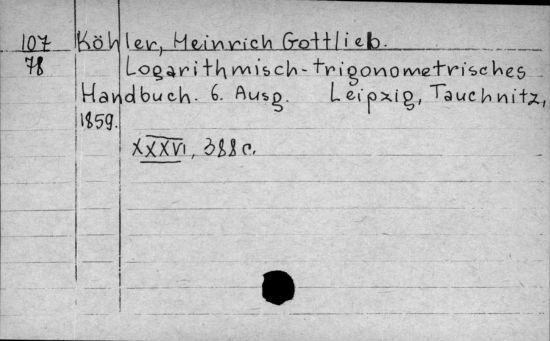 107 Köhler, Heinrich Gottlieb.
78 Logarithmisch-trigonometrisches
Handbuch. 6. Ausg. Leipzig, Tauchnitz,
1859.
XXXVI, 388 c.